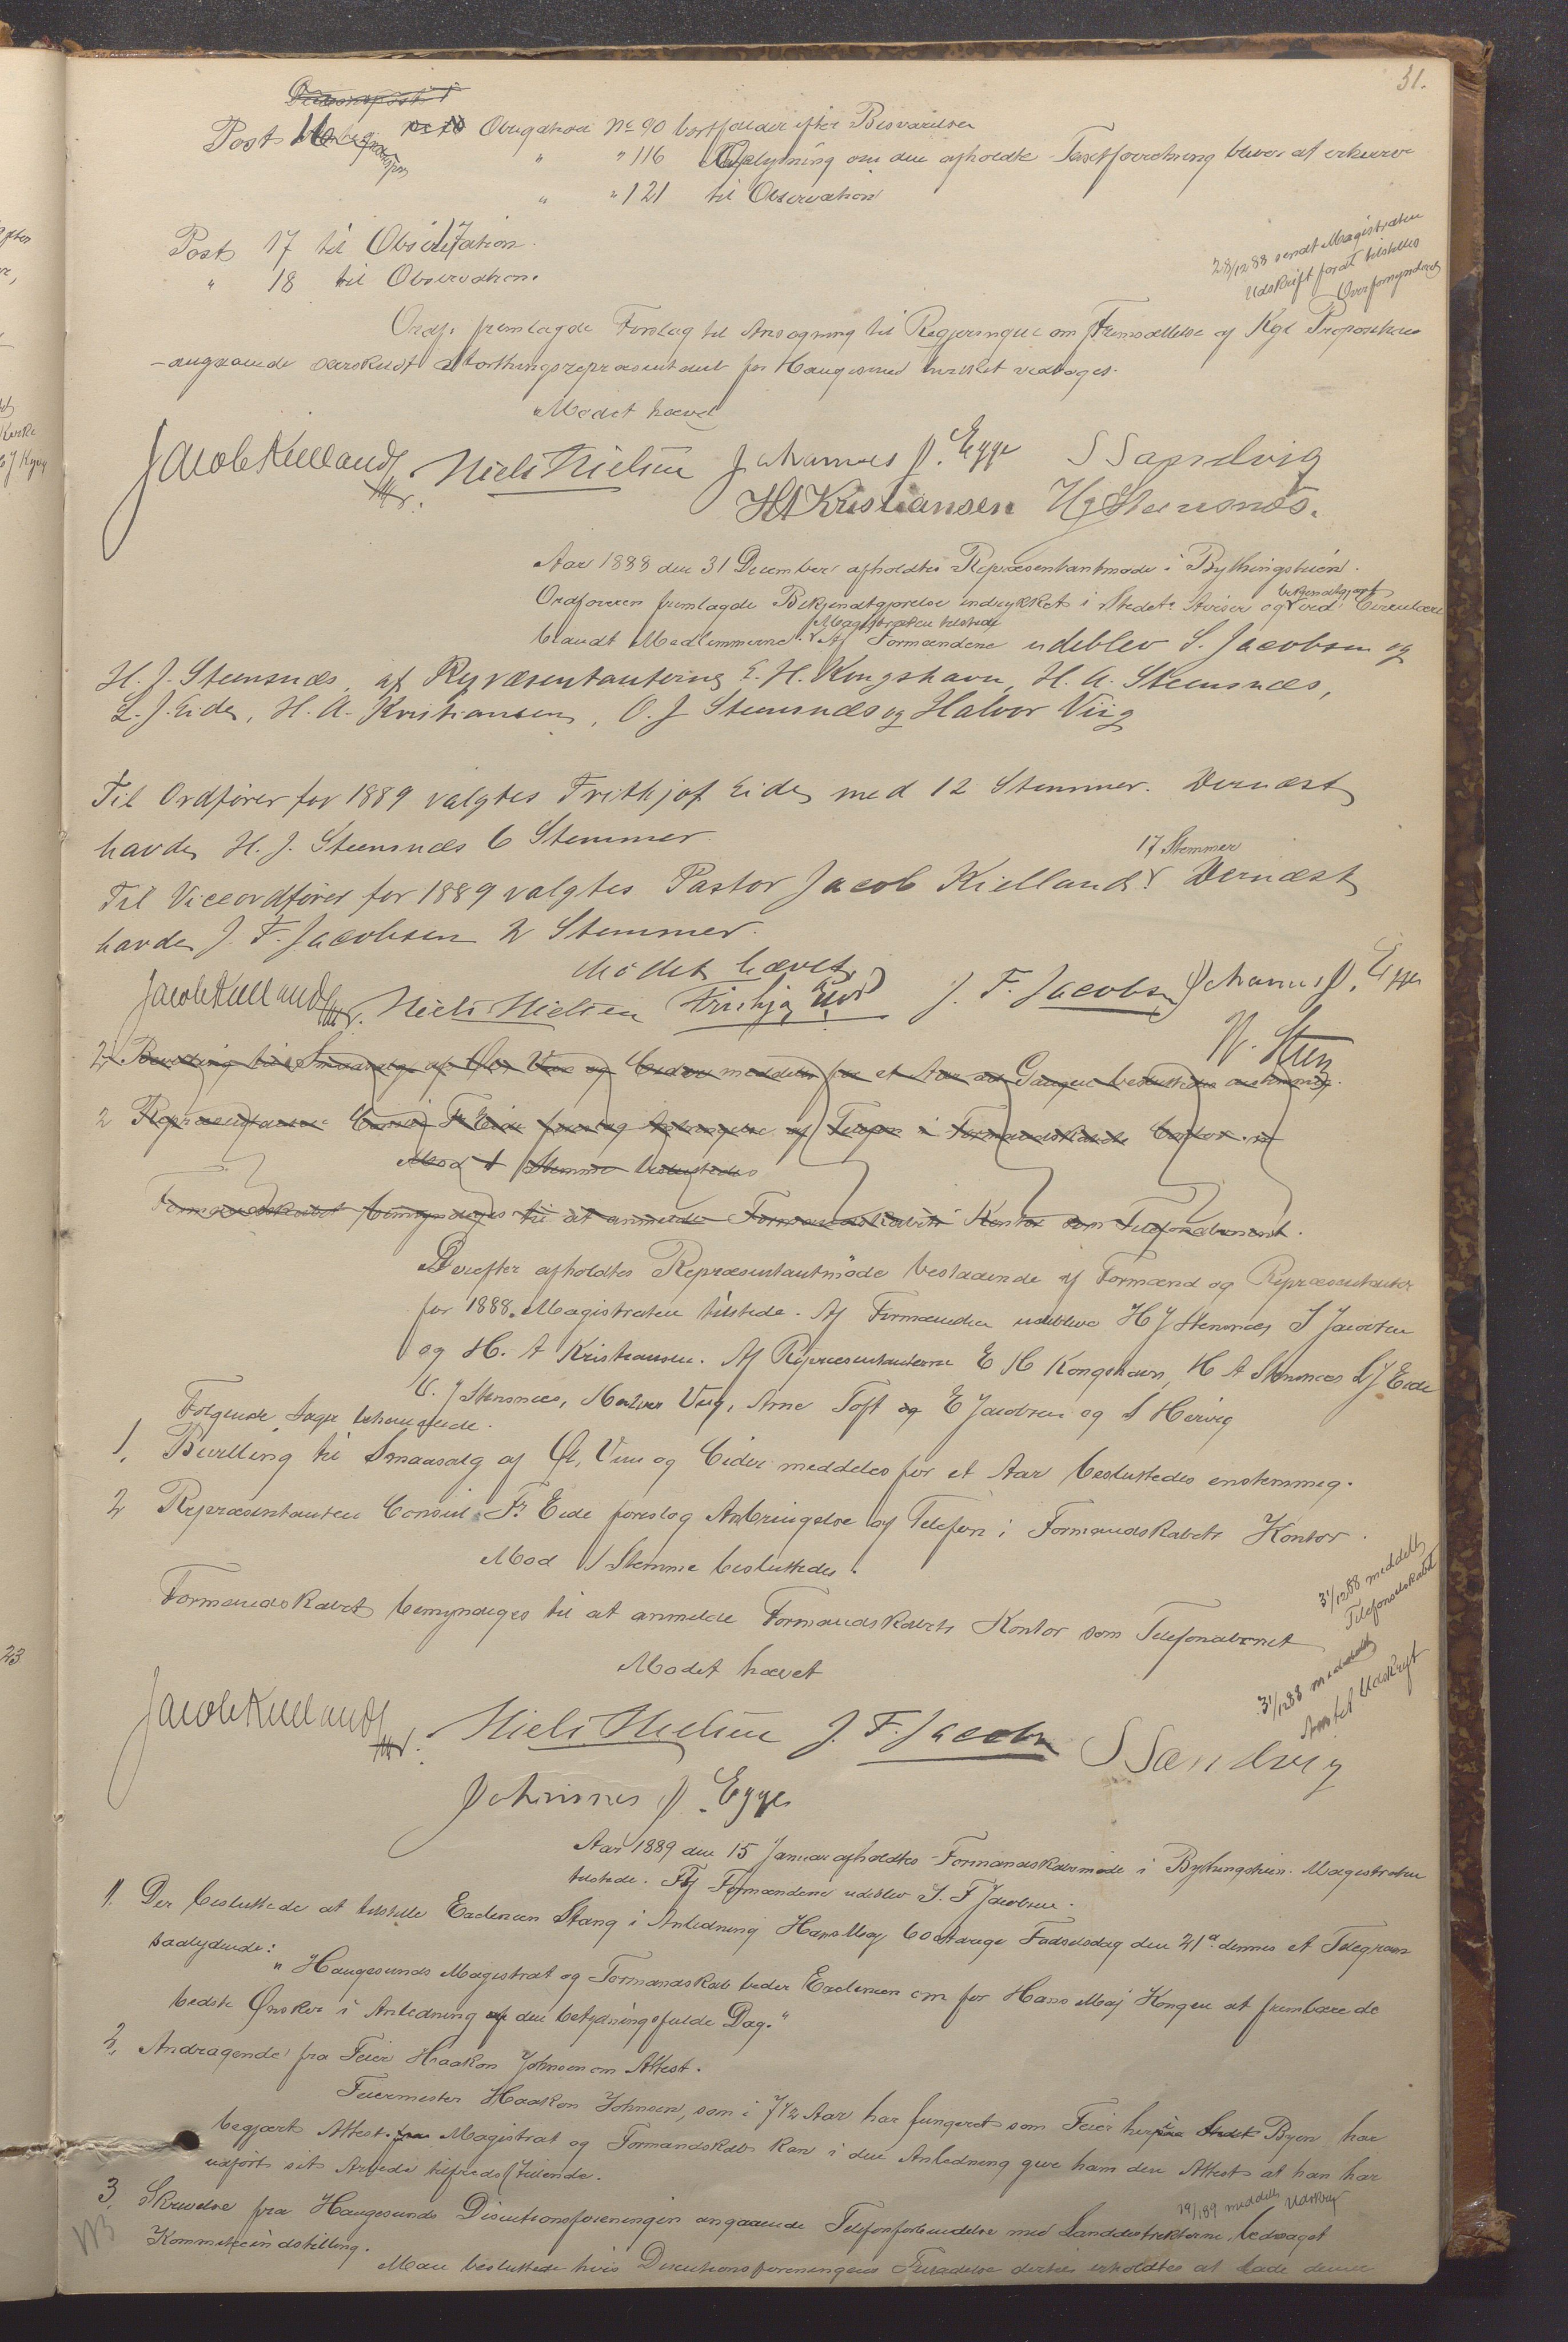 31.
Post Obligation No 90 bortfalder efter Besvarelsen
" " 116 Oplysning om den afholdte Taxtforretning bliver at erhverve
" " 121 til Observation
Post 17 til Observation.
" 18 til Observation.
28/12 88 sendt Magistraten
Udskrift forat tilstilles
Overformynderiet
Ordf. fremlagde Forslag til Ansøgning til Regjeringen om Fremsættelse af Kgl Proposition
angaaende særskildt Storthingsrepræsentant for Haugesund hvilket vedtoges.
Mødet hævet
Jacob Kielland Niels Nielsen Johannes J. Egge S Sandvig
H A Kristiansen H J Steensnæs.
Aar 1888 den 31 December afholdtes Repræsentantmøde i Bythingstuen.
Ordføreren fremlagde Bekjendtgjørelse indrykket i Stedets Aviser og bekjendtgjort ved Circulære
blandt Medlemmerne. Magistraten tilstede Af Formændene udeblev S. Jacobsen og
H. J. Steensnæs, af Repræsentanterne E. H. Kongshavn, H. A. Steensnæs,
L. J. Eide, H. A. Kristiansen, O. J Steensnæs og Halvor Viig
Til Ordfører for 1889 valgtes Frithjof Eide med 12 Stemmer. Dernæst
havde H. J. Steensnæs 6 Stemmer.
Til Viceordfører for 1889 valgtes Pastor Jacob Kielland 17 Stemmer Dernæst
havde J. F. Jacobsen 2 Stemmer.
Mødet hævet
Jacob Kielland Niels Nielsen Frithjof Eide J. F. Jacobsen Johannes J. Egge
N. Steen
2 Bevilling til Smaasalg af Øl, Vin og Cider meddeles for et Aar besluttedes enstemmig.
2 Repræsentanten Consul Fr Eide foreslog Anbringelse af Telefon i Formandskabets Contor
Mod 1 Stemme besluttedes
Formandskabet bemyndiges til at anmelde Formandskabets Kontor som Telefonabonent.
Derefter afholdtes Repræsentantmøde bestaaende af Formænd og Repræsentanter
for 1888. Magistraten tilstede. Af Formændene udeblev H J Stensnæs S Jacobsen
og H. A Kristiansen. Af Repræsentanterne E H Kongshavn, H A Stensnæs L J Eide
O. J Stensnæs, Halvor Viig, Arne Toft og E Jacobsen og S Hervig
Følgende Sager behandlede.
1. Bevilling til Smaasalg af Øl, Vin og Cider meddeles for et Aar besluttedes enstemmig.
2 Repræsentanten Consul Fr Eide foreslog Anbringelse af Telefon i Formandskabets Kontor.
Mod 1 Stemme besluttedes
Formandskabet bemyndiges til at anmelde Formandskabets Kontor som Telefonabonent
31/12 88 meddelt
Telefonselskabet
Mødet hævet
31/12 88 meddelt
Amtet Udskrift
Jacob Kielland Niels Nielsen J. F. Jacobsen S Sandvig
Johannes J. Egge
Aar 1889 den 15 Januar afholdtes Formandskabsmøde i Bythingstuen. Magistraten
tilstede. Af Formændene udeblev J. F Jacobsen.
1. Der besluttede at tilstille Exelencen Stang i Anledning Hans Maj 60 Aarige Fødselsdag den 21de dennes et Telegram
saalydende:
"Haugesunds Magistrat og Formandskab beder Exelencen om for Hans Maj Kongen at frembære de
bedste Ønsker i Anledning af den betydningsfulde Dag."
2. Andragende fra Feier Haakon Johnsen om Attest.
Feiermester Haakon Johnsen, som i 7 1/2 Aar har fungeret som Feier her i Byen har
begjært Attest. Magistrat og Formandskab kan i den Anledning give ham den Attest at han har
udført sit Arbeide tilfredsstillende.
19/1 89 meddelt Udskrift
3. Skrivelse fra Haugesunds Discutionsforeningen angaaende Telefonforbindelse med Landdistrikterne, ledsaget
Kommiteeindstilling.
Man besluttede hvis Discutionsforeningens Tilladelse dertil erholdtes at lade denne